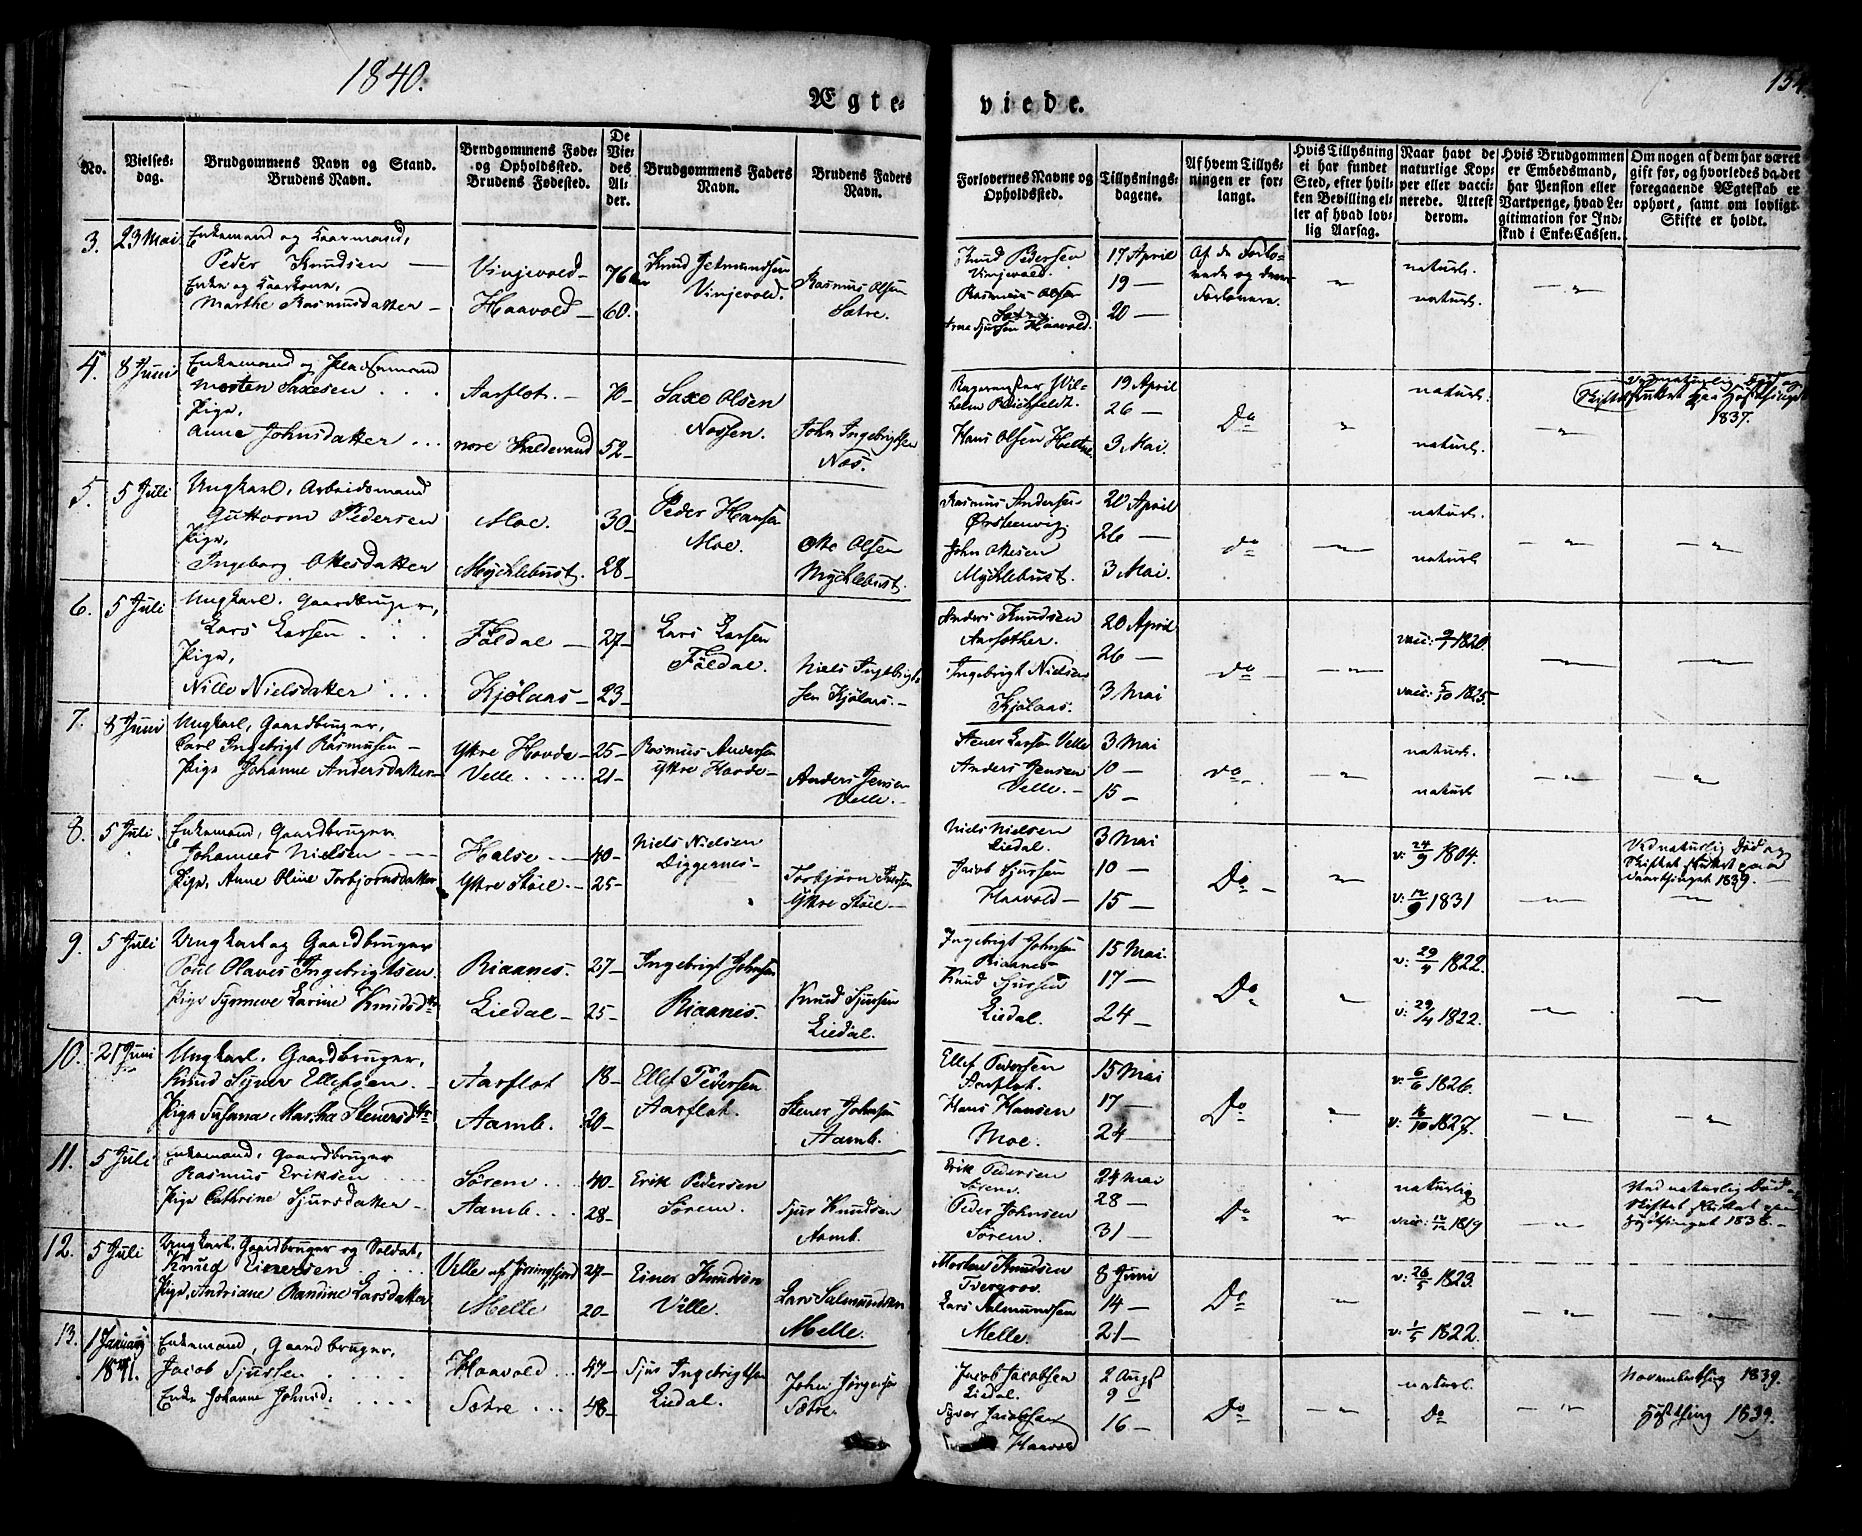 1840.
154.
Ægte-
viede.
No.
Vielses-
dag.
Brudgommens Navn og Stand.
Brudens Navn.
Brudgommens Føde-
og Opholdssted.
Brudens Fødested.
De
Vie-
des
Al-
der.
Brudgommens Faders
Navn.
Brudens Faders
Navn.
Forlovernes Navne og
Opholdssted.
Tillysnings-
dagene.
Af hvem Tillys-
ningen er for-
langt.
Hvis Tillysning
ei har fundet
Sted, efter hvil-
ken Bevilling el-
ler af hvad lov-
lig Aarsag.
Naar havt de
naturlige Kop-
per eller vacci-
nerede. Attest
derom.
Hvis Brudgommen
er Embedsmand,
har Pension eller
Vartpenge, hvad Le-
gitimation for Ind-
skud i Enke-Cassen.
Om nogen af dem har været
gift før, og hvorledes da det
foregaaende Ægteskab er
ophørt, samt om lovligt
Skifte er holdt.
3. 23 Mai
Enkemand og Kaarmand,
Peder Knudsen —
Enke og Kaarkone,
Marthe Rasmusdatter —
Vinjevold — 76
Haavold — 60.
Knud Jetmundsen
Vinjevold.
Rasmus Olsen
Sætre.
Knud Pedersen
Vinjevold.
Rasmus Olsen
Sætre.
Arne Sjursen Haavold.
17 April
19 —
20 —
Af de Forlo-
vede og deres
Forlovere.
naturl.
naturl.
4. 8 Juni
Enkemand og Pladsemand
Morten Saxesen . . .
Pige,
Anne Johnsdatter . . .
Aarflot. — 70 —
nore Kaldevand 52 —
Saxe Olsen
Nossen.
John Ingebrigtsen
Nos.
Wil-
helm Reichfeldt.
Hans Olsen
19 April
26 —
3 Mai.
Do
naturl.
naturl.
Ved naturlig Død og
Skiftet sluttet paa Høsthinget
1837.
5. 5 Juli
Ungkarl, Arbeidsmand
Guttorm Pedersen
Pige,
Ingeborg Ottesdatter
Moe. 30 —
Mychlebust. 28 —
Peder Hansen
Moe.
Otte Olsen
Mychlebust.
Rasmus Andersen
Ørsteenvig.
John Ottesen
Mychlebust.
20 April
26 —
3 Mai.
do
naturl.
naturl
6. 5 Juli
Ungkarl, Gaardbruger,
Lars Larsen . . .
Pige,
Nille Nielsdatter . . .
Føldal — 27 —
Kjølaas — 23 —
Lars Larsen
Føldal.
Niels Ingebrigt-
sen Kjølaas. —
Anders Knudsen
Aarsæther.
Ingebrigt Nielsen
Kjølaas.
20 April
26 —
3 Mai
do
vacc: 9/7 1820.
vacc: 5/10 1825.
7. 8 Juni
Ungkarl, Gaardbruger,
Carl Ingebrigt Rasmusen —
Pige Johanne Andersdatter —
Ytre Hovde — 25 —
Velle . . . . 21 —
Rasmus Andersen
Ytre Hovde —
Anders Jensen
Velle. —
Stener Larsen Velle
Anders Jensen
Velle. —
3 Mai
10 —
15 —
do
naturl.
naturl
8. 5 Juli.
Enkemand, Gaardbruger
Johannes Nielsen — —
Pige, Anne Oline Torbjornsdatter
Halse — 40 —
Ytre Støil — 25 —
Niels Nielsen
Diggernes —
Torbjørn Iversen
Ytre Støil —
Niels Nielsen
Liedal.
Jacob Sjursen
Haavold —
3 Mai
10 —
15 —
Do
v: 24/9 1804.
v: 12/9 1831
Ved naturlig Død og
Skiftet sluttet paa
Vaarthinget 1839. —
9. 5 Juli
Ungkarl og Gaardbruger
Poul Olaves Ingebrigtsen.
Pige Synneve Larine Knudsdtr
Riaanes. 27 —
Liedal — 25 —
Ingebrigt Johnsen
Riaanes.
Knud Sjursen
Liedal.
Ingebrigt Johnsen
Riaanes —
Knud Sjursen
Liedal.
15 Mai.
17 —
24 —
Do
v: 29/4 1822.
v: 29/4 1822.
10. 21 Juni
Ungkarl, Gaardbruger,
Knud Syver Ellefsen. —
Pige Susana Martha Stenersdtr
Aarflot 18 —
Aamb. 20 —
Ellef Pedersen
Aarflot.
Stener Johnsen
Aamb.
Ellef Pedersen
Aarflot.
Hans Hansen
Moe.
15 Mai
17 —
24 —
Do
v: 6/6 1826.
v: 16/10 1827.
11. 5 Juli
Enkemand, Gaardbruger
Rasmus Eriksen . . .
Pige Cathrine Sjursdatter —
Sørem . . . 40 —
Aamb . . . 28 —
Erik Pedersen
Sørem.
Sjur Knudsen
Aamb.
Erik Pedersen
Sørem.
Peder Johnsen
Sørem.
24 Mai
28 —
31 —
Do
naturlig
vacc: 12/12 1819
Ved naturlig Død
Skiftet sluttet paa
Høstthinget 1838. —
12. 5 Juli
Ungkarl, Gaardbruger og Soldat,
Knud Einersen . . .
Pige, Andriane Randine Larsdatter
Velle af Jøringfjord 27 —
Melle 20 —
Einer Knudsen
Velle.
Lars Salmundsen
Melle.
Morten Knudsen
Tvergrov.
Lars Salmundsen
Melle.
8 Juni
14 —
21 —
Do
v: 26/5 1823.
v: 1/5 1822.
13. 1 Januar
1841.
Enkemand, Gaardbruger,
Jacob Sjursen . . . .
Enke Johanne Johnsd. . . . .
Haavold . . . 47 —
Sætre . . . 48 —
Sjur Ingebrigtsen
Liedal.
John Jørgensen
Sætre.
Jacob Jacobsen
Liedal.
Syver Jacobsen
Haavold
2 Augs
9 —
16 —
Do
naturl.
Do
Novemberthing 1839.
Høstthing 1839.